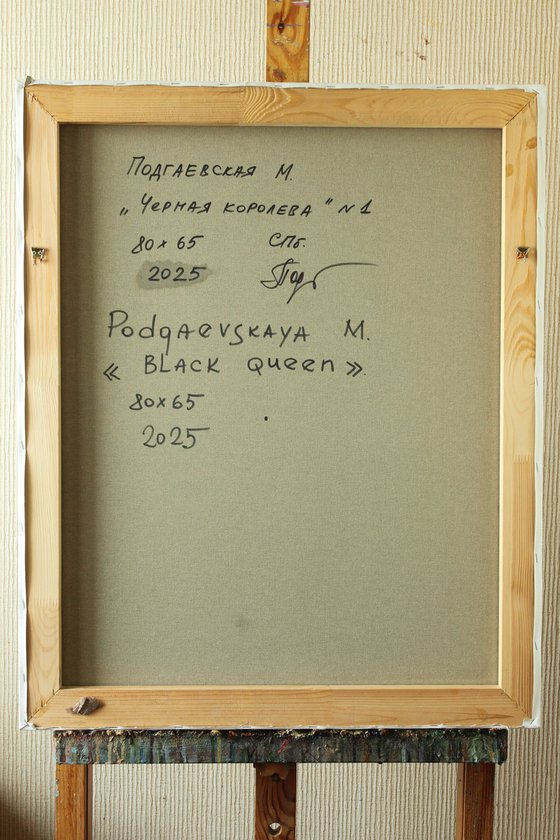 Подгаевская М.
„Черная королева" N1
80x65 СПб.
2025 Подг
Podgaevskaya M.
« BLACK Queen ».
80x65
2025